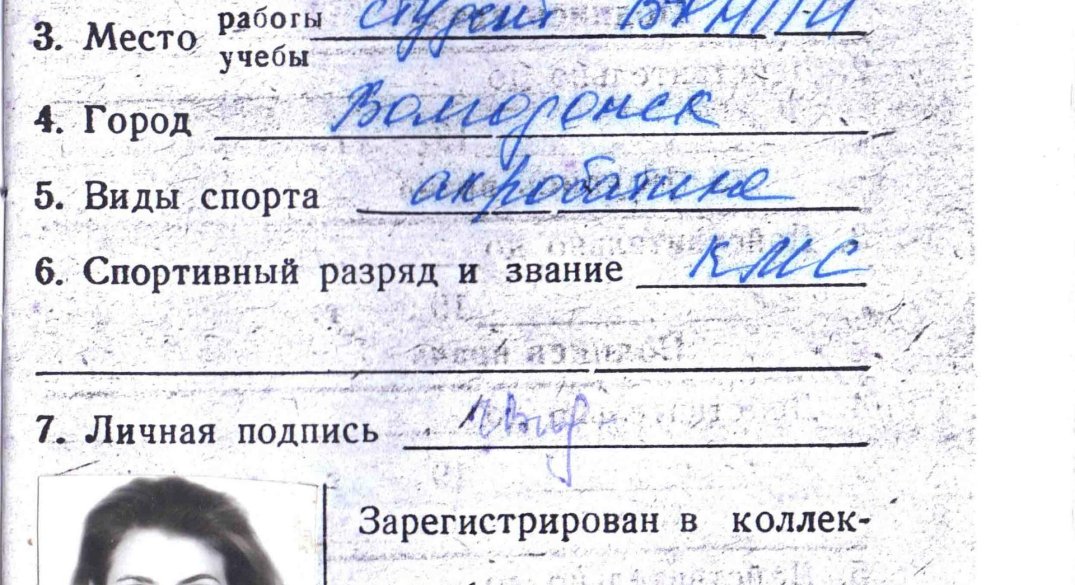 работы
3. Место студент
учебы
4. Город Волгодонск
5. Виды спорта акробатика
6. Спортивный разряд и звание КМС
7. Личная подпись
Зарегистрирован в коллек-